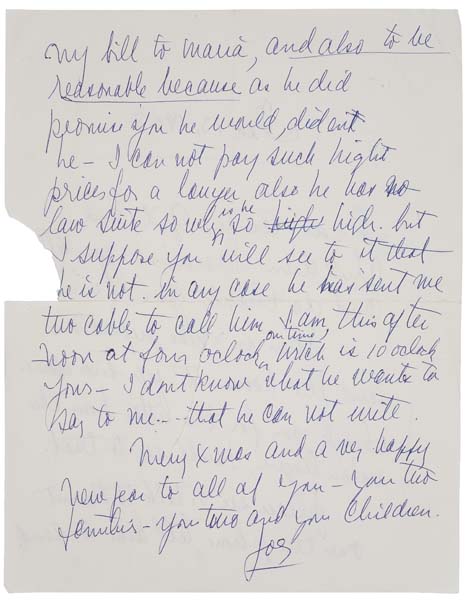 my bill to maria, and also to be
reasonable because as he did
promise you he would, did ent
he - I can not pay such hight
prices for a lawyer also he has no
law suite so why is he so high high. but
I suppose you will see to it that
he is not. in any case he has sent me
two cables to call him I am, this after
noon at four oclock our time, witch is 10 oclock
yours - I dont know what he wants to
say to me -- that he can not write.
Merry Xmas and a very happy
New year to all of you - you two
families - you two and your children.